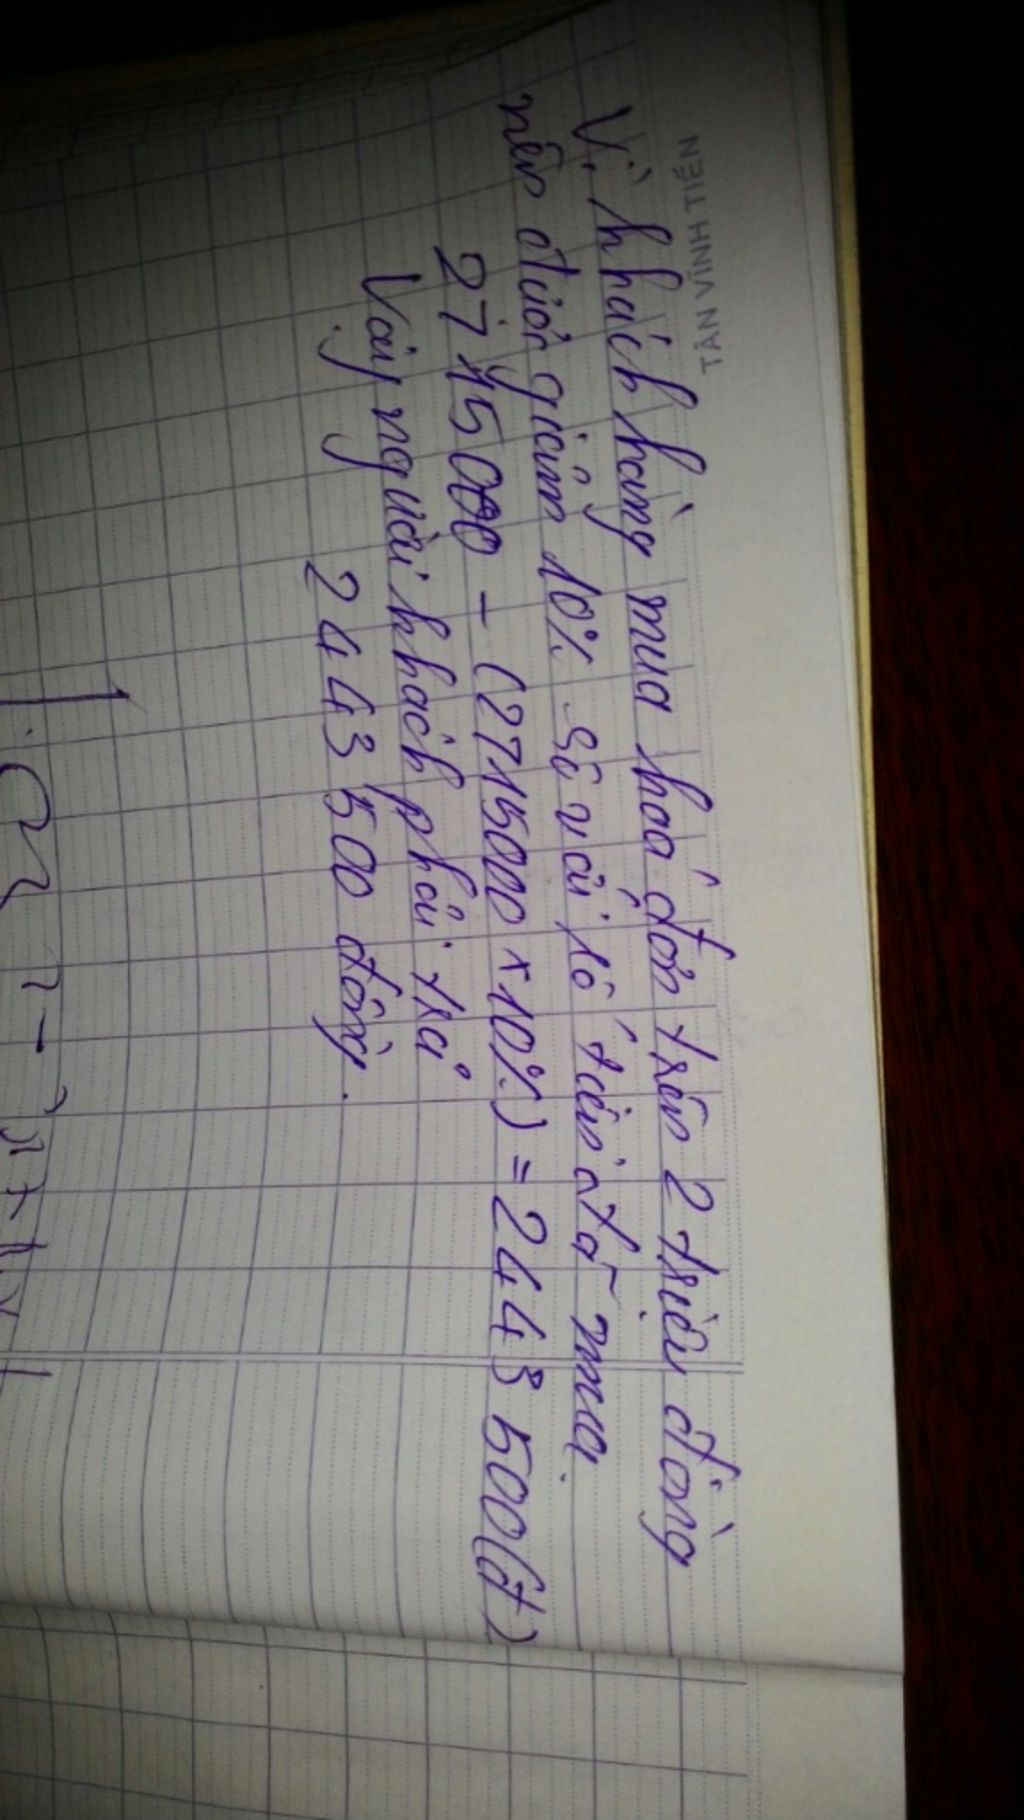 TÂN VĨNH TIẾN
Vì khách hàng mua hoá đơn trên 2 triệu đồng
nên được giảm 10% so với số tiền đã mua.
2715000 - (2715000 x 10%) = 2443500(đ)
Vậy người khách phải trả
2443500 đồng.